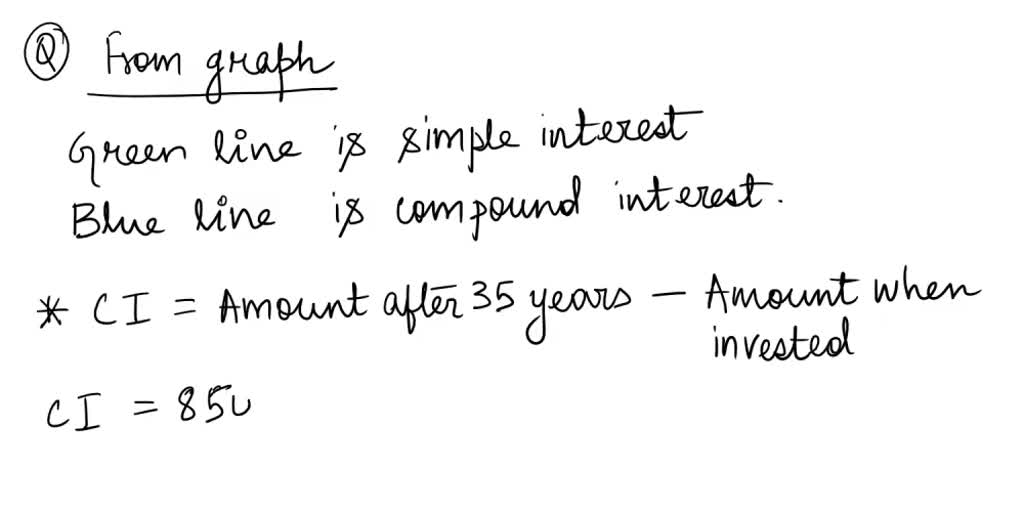 Q From graph
Green line is simple interest
Blue line is compound interest.
* CI = Amount after 35 years – Amount when
invested
CI = 850